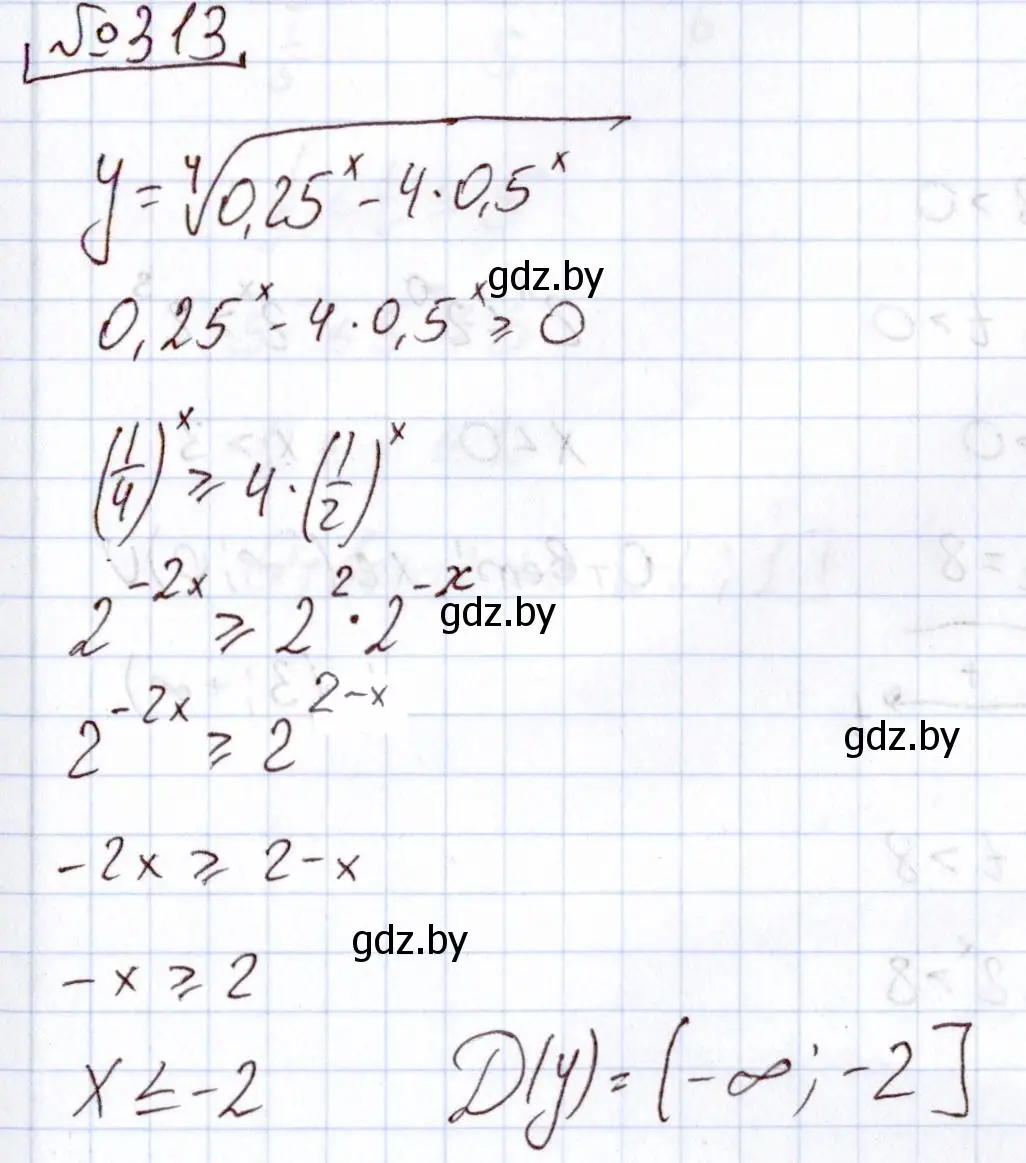 №313
y = ⁴√(0,25^x - 4·0,5^x)
gdz.by
0,25^x - 4·0,5^x ≥ 0
(1/4)^x ≥ 4·(1/2)^x
2^(-2x) ≥ 2^2·2^(-x)
gdz.by
2^(-2x) ≥ 2^(2-x)
gdz.by
-2x ≥ 2-x
gdz.by
-x ≥ 2
x ≤ -2 D(y) = (-∞; -2]